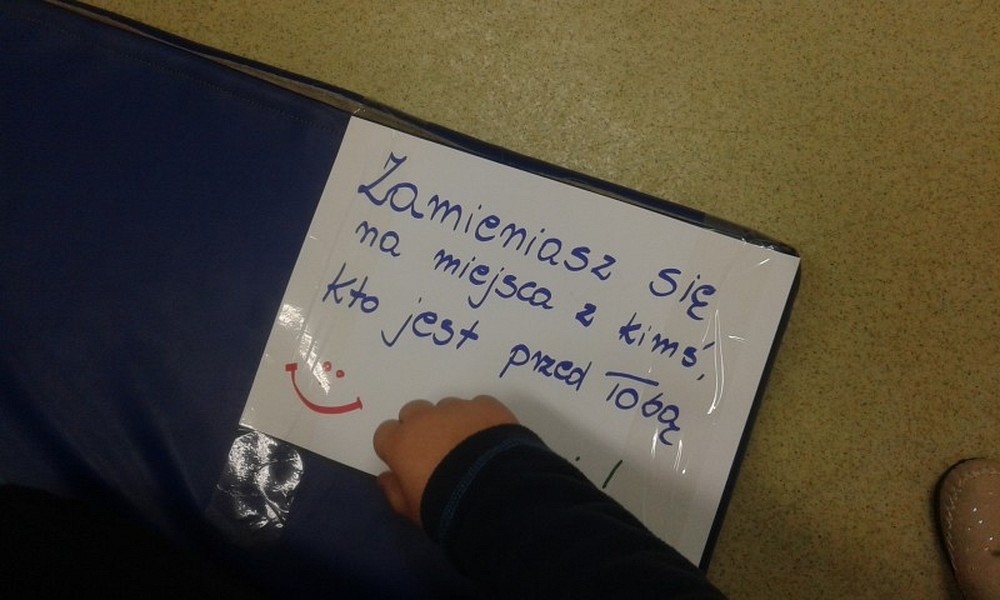 Zamieniasz się
na miejsca z kimś,
kto jest przed Tobą